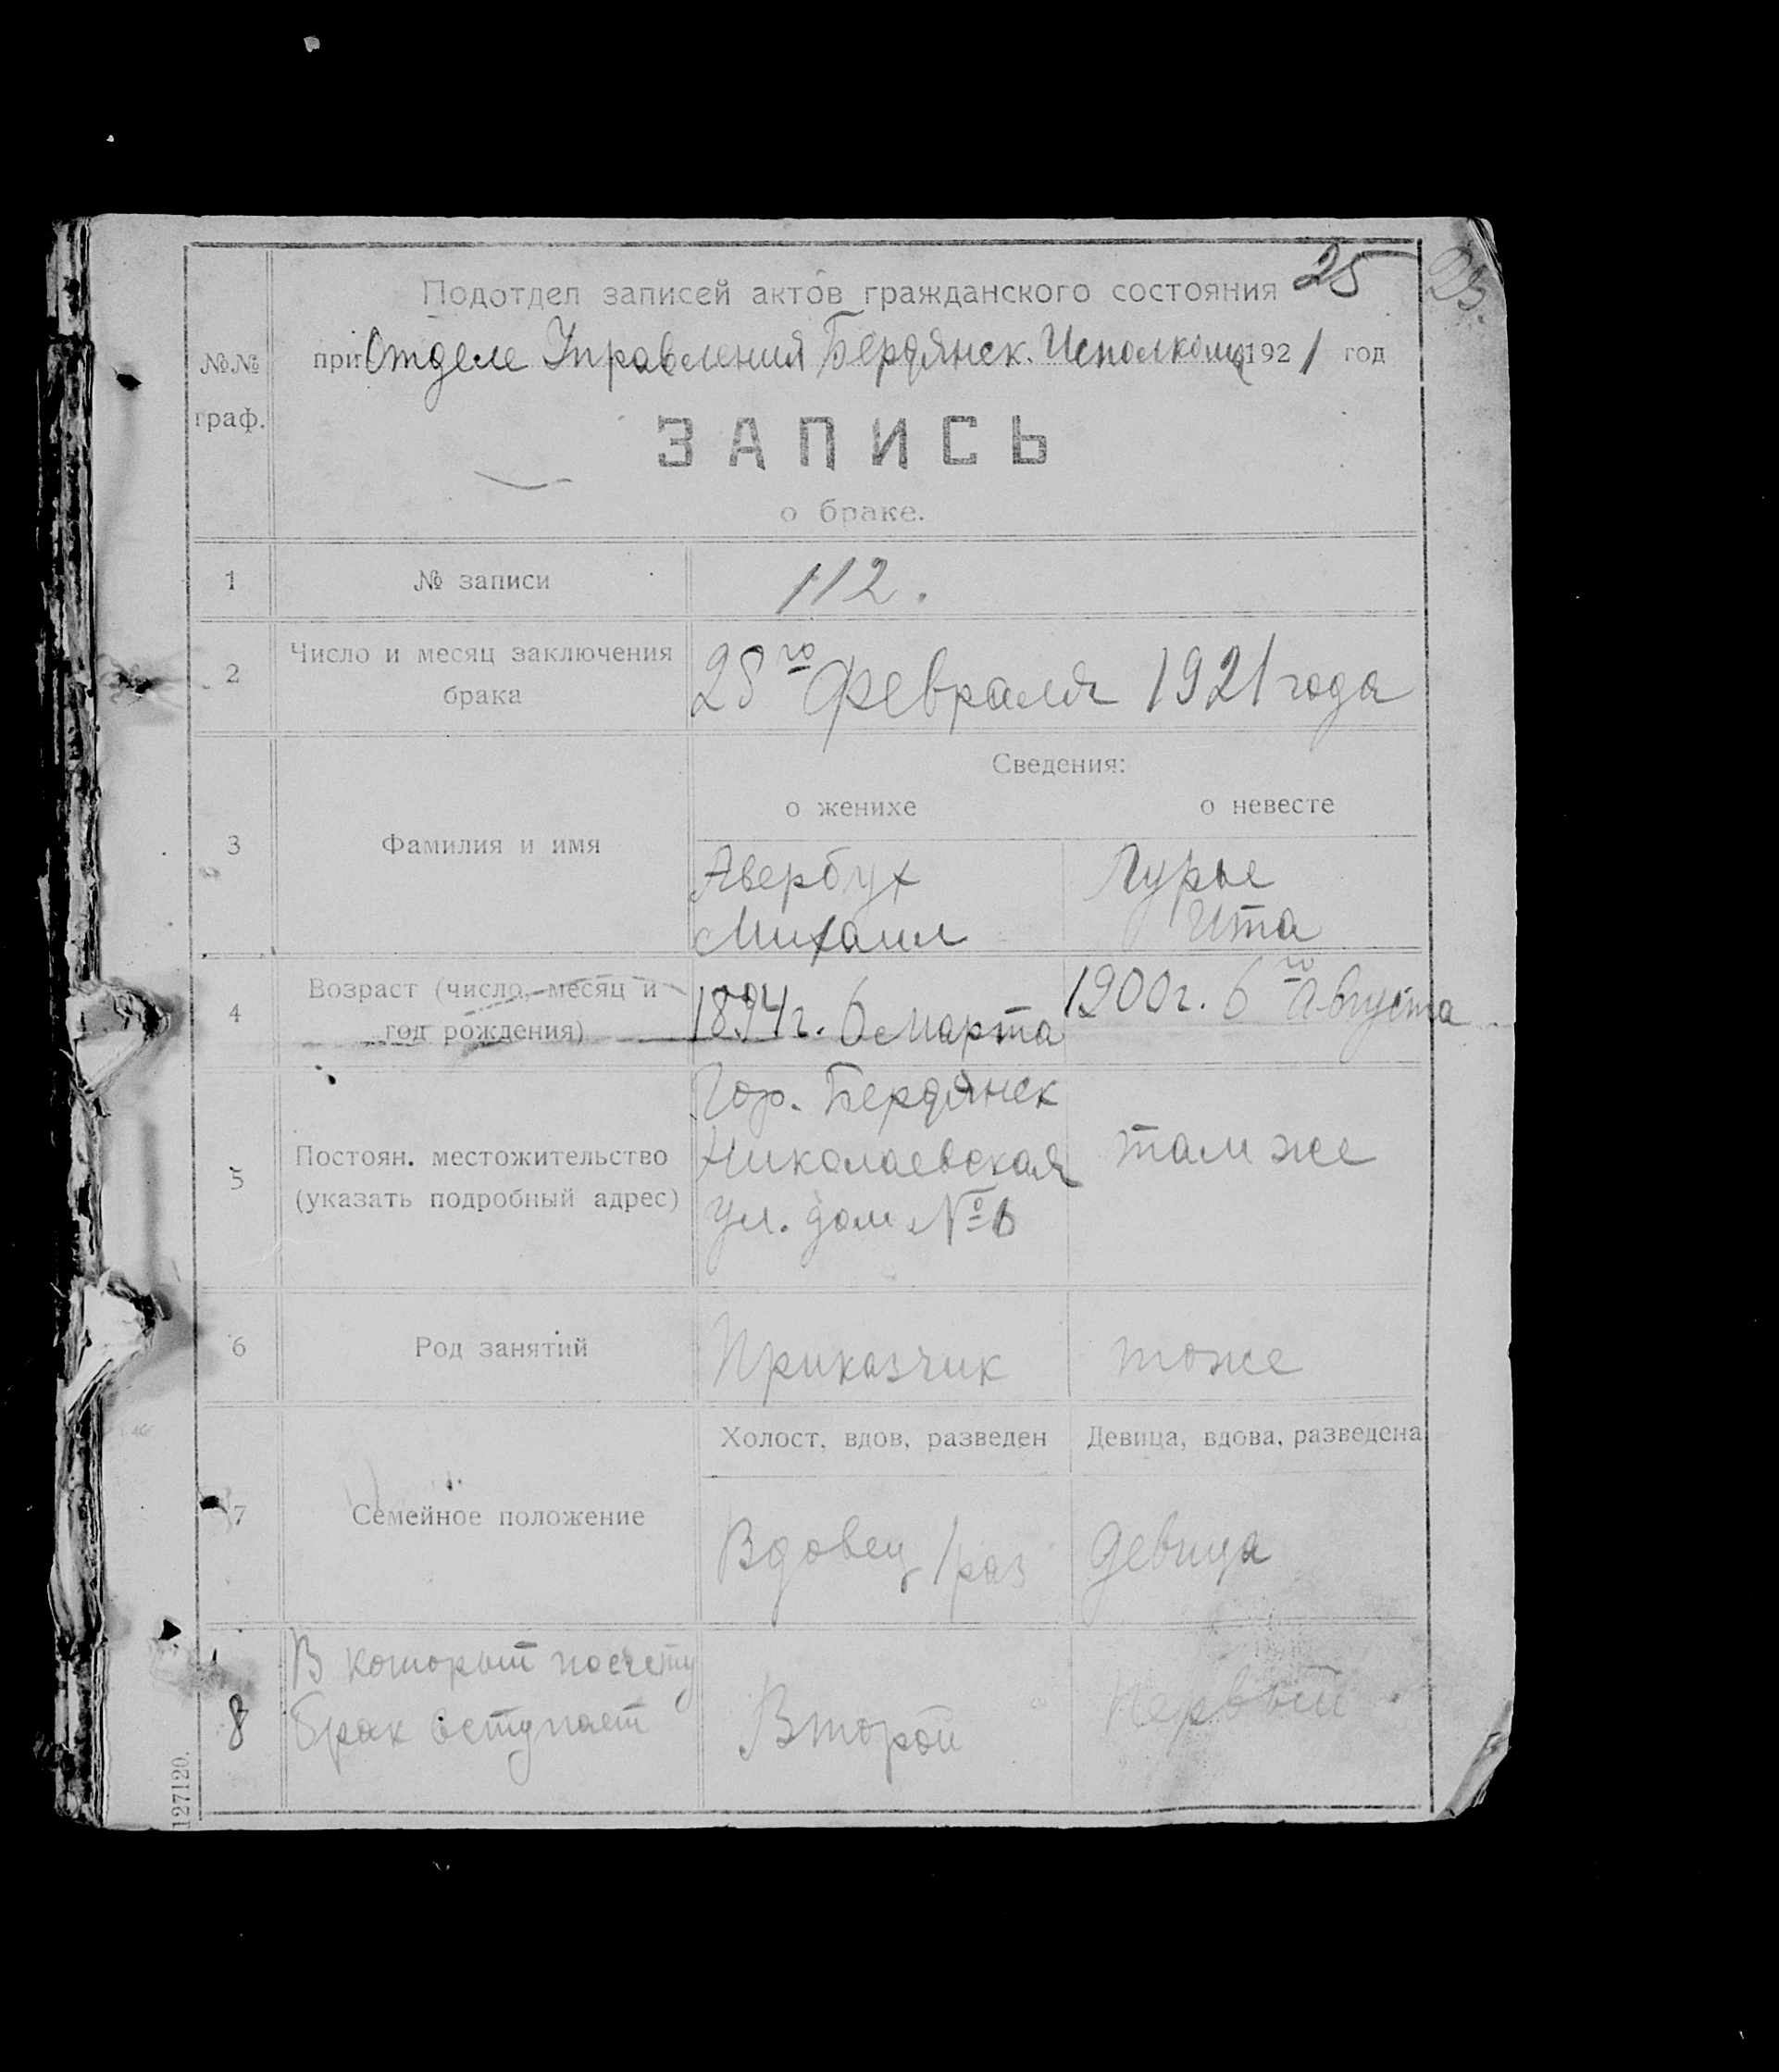 25 25.
Подотдел записей актов гражданского состояния
при Отделе Управления Бердянск. Исполкома 1921 год
№№
граф.
ЗАПИСЬ
о браке.
1 № записи 112.
2 Число и месяц заключения
брака
28го февраля 1921 года
Сведения:
о женихе о невесте
3 Фамилия и имя
Авербух Лурье
Михаил Ита
4 Возраст (число, месяц и
год рождения)
1894 г. 6 марта 1900 г. 6го Августа
5 Постоян. местожительство
(указать подробный адрес)
Гор. Бердянск
Николаевская там же
ул. дом № 6
6 Род занятий Приказчик тоже
Холост, вдов, разведен Девица, вдова, разведена
7 Семейное положение
Вдовец 1 раз девица
8 В который по счету
брак вступает
Второй Первый
127120.